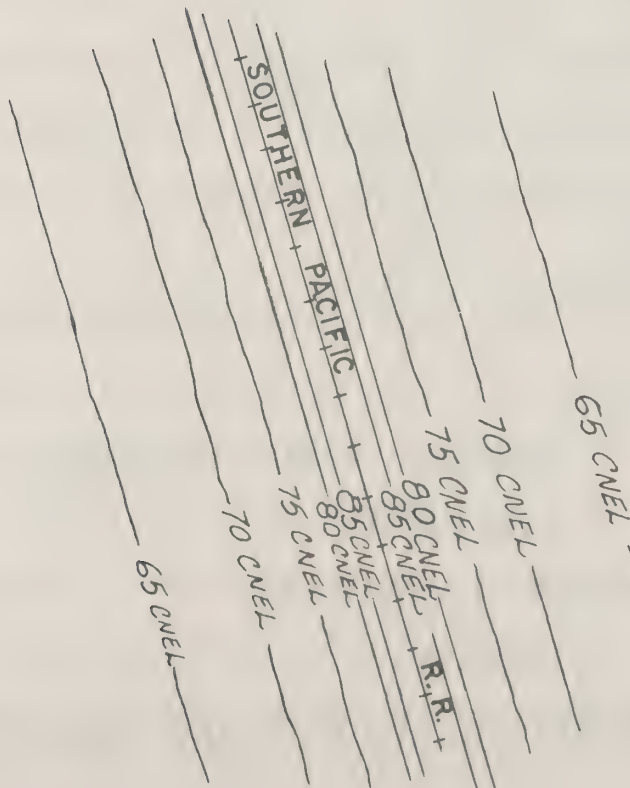 SOUTHERN PACIFIC R.R.
65 CNEL
70 CNEL
75 CNEL
80 CNEL
85 CNEL
85 CNEL
80 CNEL
75 CNEL
70 CNEL
65 CNEL